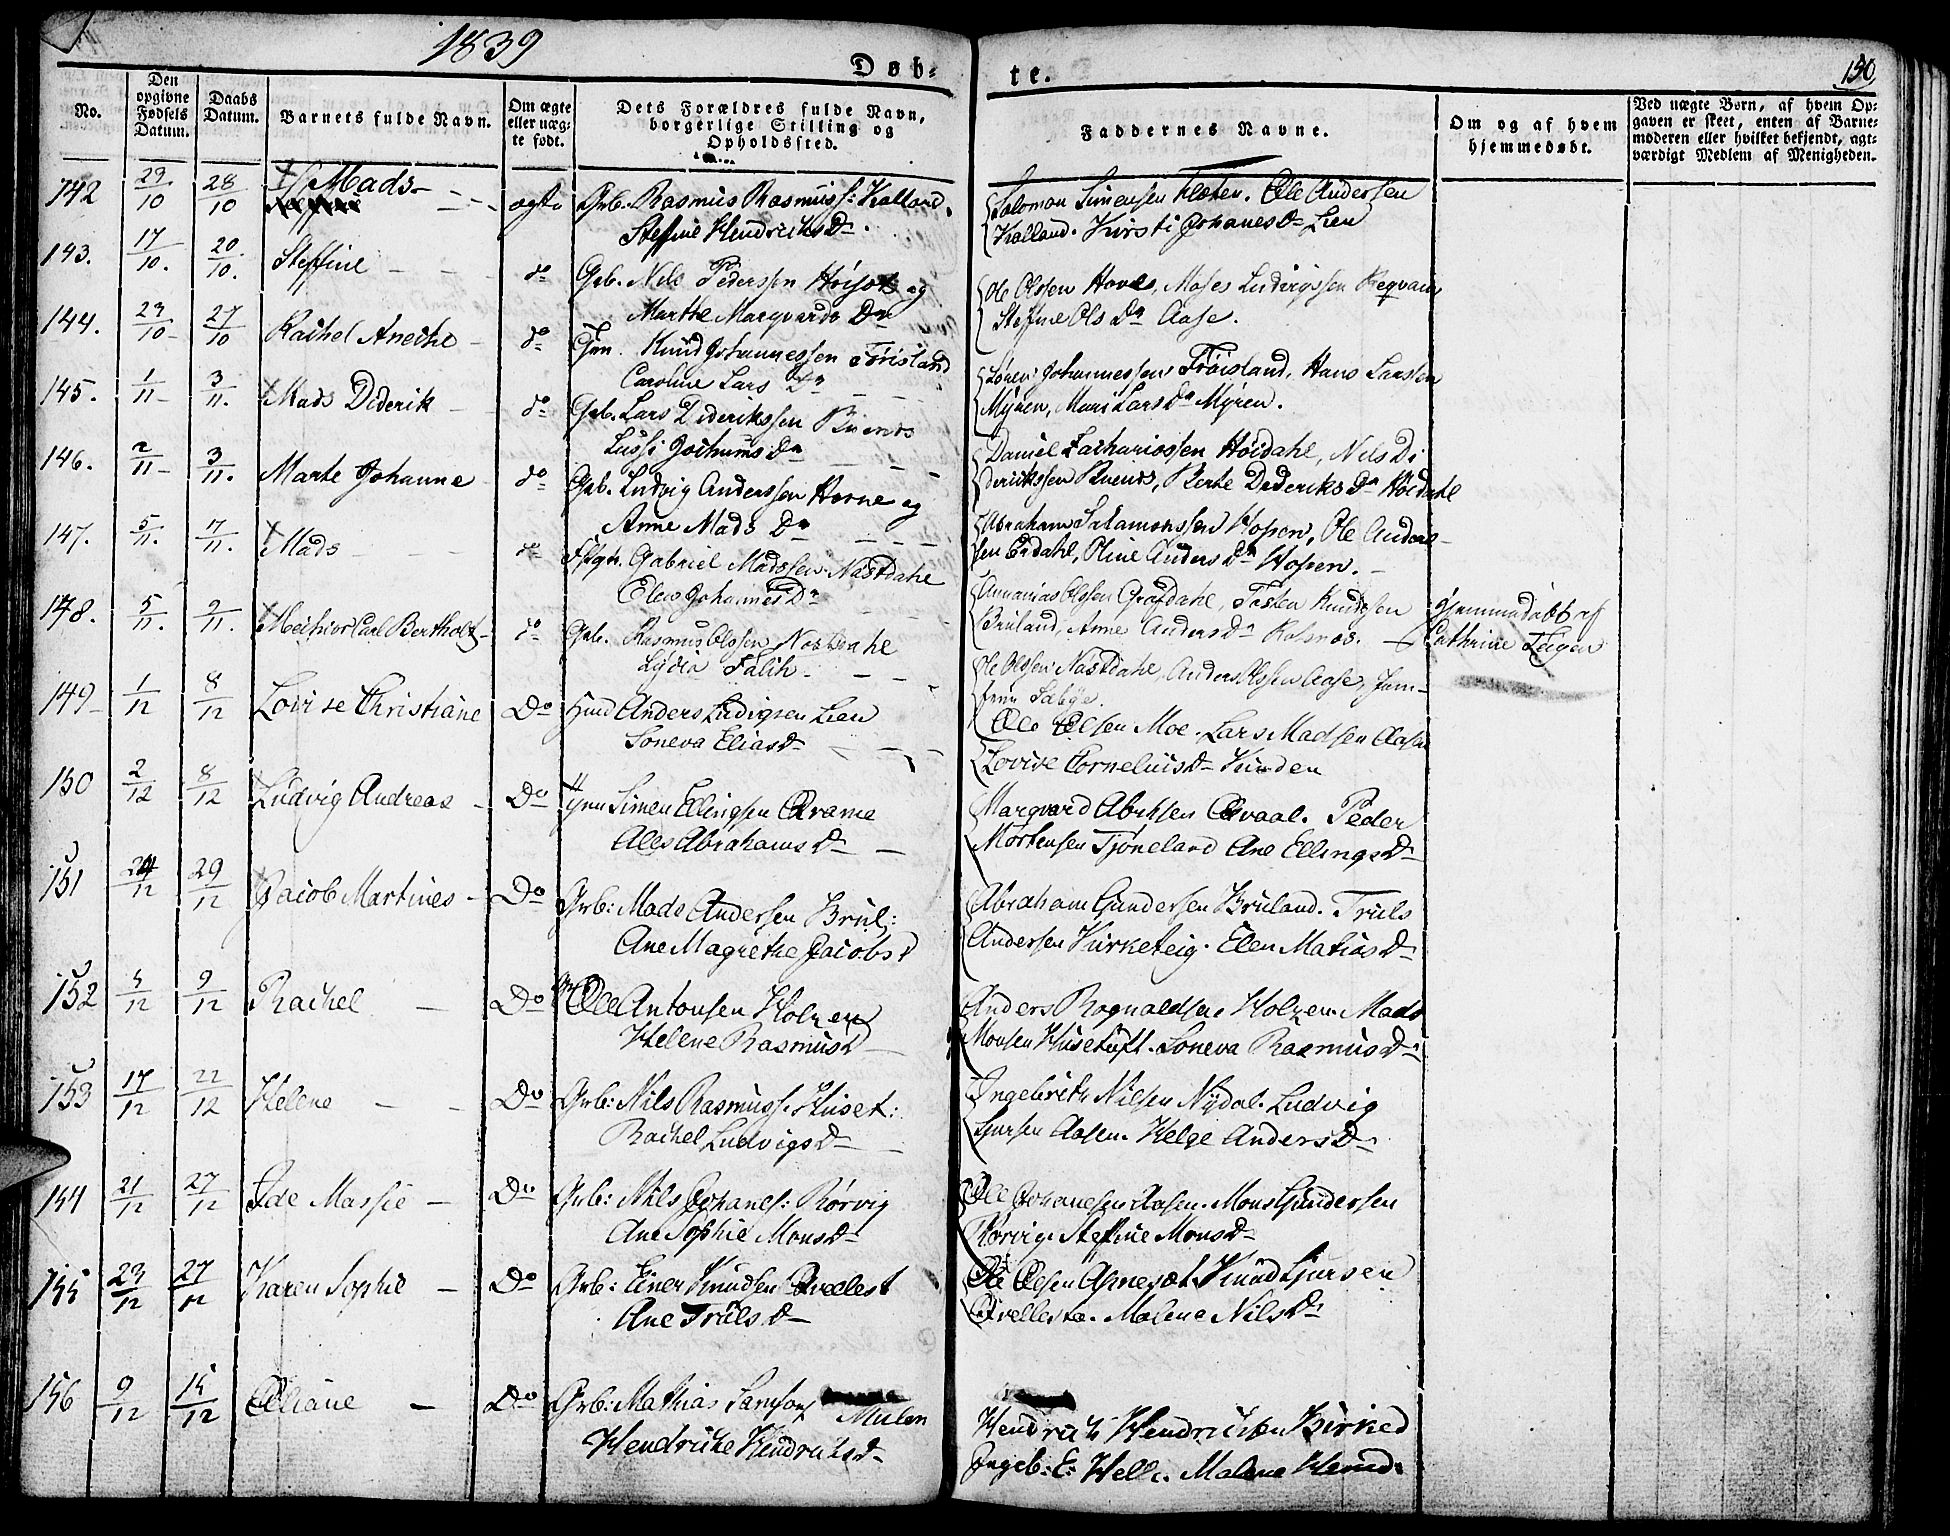 1839
Døb-
te.
150
No.
Den opgivne Fødsels Datum.
Daabs Datum.
Barnets fulde Navn.
Om ægte eller uæg-te født.
Dets Forældres fulde Navn, borgerlige Stilling og Opholdssted.
Faddernes Navne.
Om og af hvem hjemmedøbt.
Ved uægte Børn, af hvem Op-gaven er skeet, enten af Barne-moderen eller hvilket bekjendt, agt-værdigt Medlem af Menigheden.
142 29/10 28/10 Mads ægte Grb. Rasmus Rasmuss: Kalland
Steffine HendriksD
Salomon Simensen Ole Andersen
Kalland. Kirsti JohanesD Lien
143. 17/10. 20/10. Steffine do Grb. Nils Pederssen og
Marthe Marqvards D
Ole Olssen Hovls, Moses Ludvigssen
Steffine Ols D Aase.
144. 23/10 27/10 Rachel Anethe do Knud Johannessen Frøisland
Caroline Lars D
Johannessen Frøisland, Hans Larssen
Myren, Mari LarsD Myren.
145. 1/11 3/11. Mads Diderik do Grb. Lars Dideriksen
Lussi JochumsD
Daniel Zachariassen Høidahl, Nils Di
deriksen Berte DideriksD Høidahl
146. 2/11 3/11. Marte Johanne do Grb. Ludvig Anderssen Horne og
Anne Mads D
Abraham Salamonssen Hopen, Ole Anders-
sen Erdahl, Oline AndersD Hopen.
147. 5/11. 17/11. Mads do Gabriel Madssen Nastdahl
Elen JohannesD
Annanias Olssen Grafdahl, Tosten Knudssen
Bruland, Anne AndersD
148. 5/11. 9/11. Carl Berthold do Grb. Rasmus Olssen Nastdahl
Lydia Falch
Ole Olssen Nastdahl, Anders Olssen Aase, Jom-
fru
Hjemmedøbt af
Cathrine Teigen
149 1/12 8/12 Lovise Christiane Do Huusm Anders Ludvigsen Lien
Soneva EliasD
Ole Olsen Moe. Lars Madsen Aasen
Lovise CorneliusD
150 2/12 8/12 Ludvig Andreas Do Simen Ellingsen
Ales AbrahamsD
Marqvard Qvaal. Peder
Mortensen Tjøneland Ane EllingsD
151 24/12 29/12 Jacob Martines Do Grb: Mads Andersen Brul:
Ane Magrethe JacobsD
Abraham Gundersen Bruland. Truls
Andersen Kirketeig. Elen MatiasD
152 5/12 9/12 Rachel Do Ole Antonsen Holzen
Helene RasmusD
Anders Ragnaldsen Holzen. Mads
Monsen Husetuft. Soneva RasmusD
153 17/12 22/12 Helene Do Grb: Nils Rasmuss: Huset:
Rachel LudvigsD
Ingebrith Nilsen Nydal. Ludvig
Aasen. Helge AndersD
154 21/12 27/12 Ide Massie Do Grb: Nils Johanes: Rørvig
Ane Sophie MonsD
Ole Johanesen Aasen. Mons Gundersen
Rørvig. Steffine MonsD
155 23/12 27/12 Karen Sophie Do Grb: Einer Knudsen Qvellest
Ane TrulsD
Ole Olsen Knud Gjursen
Qvellestad. Malene NilsD
156 9/12 15/12 Oliane Do Grb: Mathias Samsons Mulen
Hendricke HendriksD
Hendrich Hendrichsen Birkel
Ingeb: E: Malene Hend: